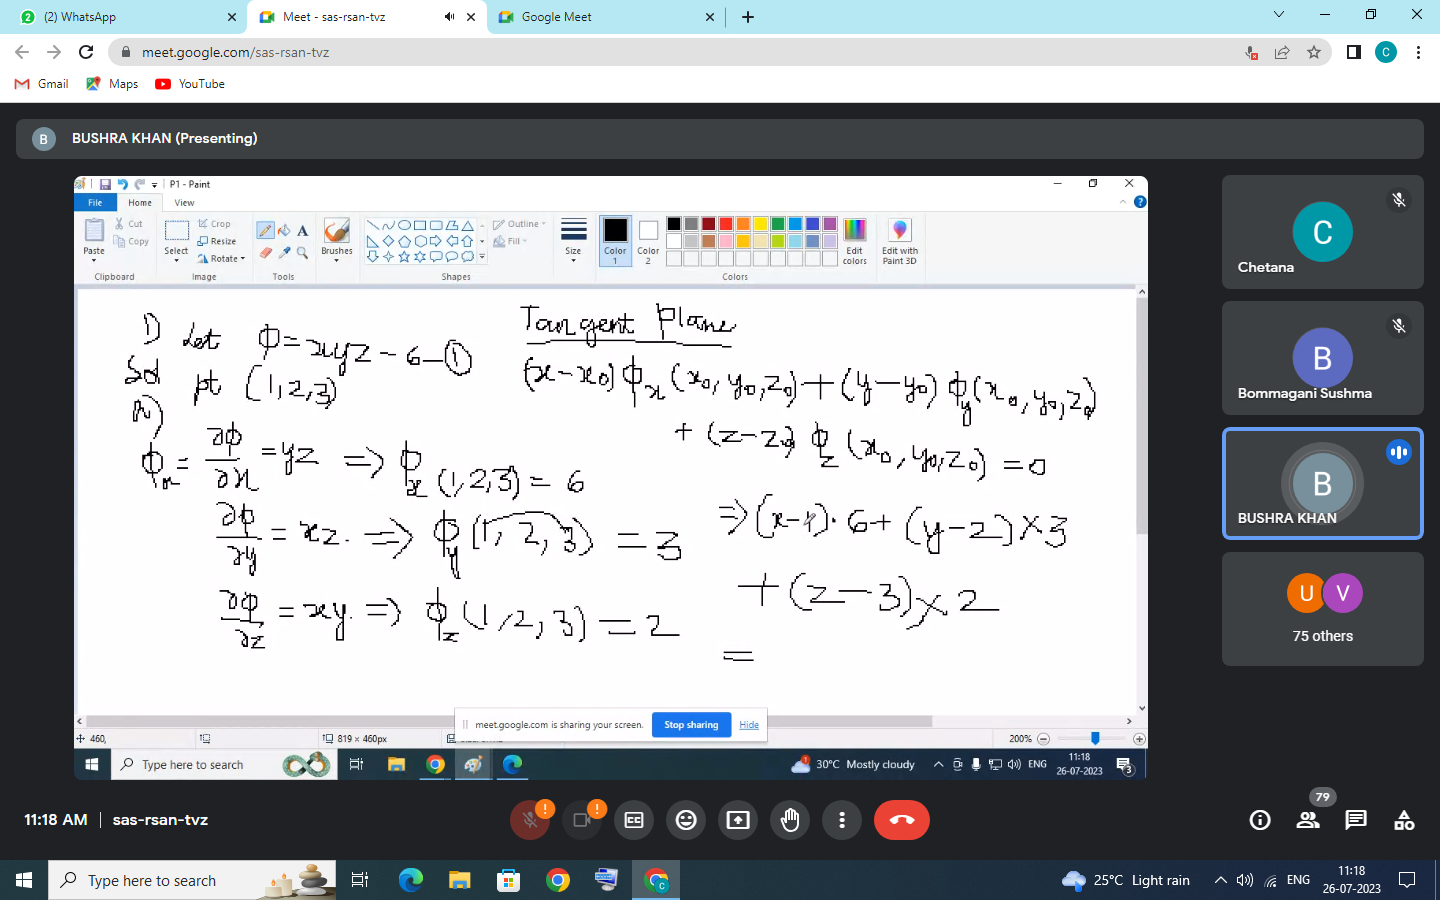 (2) WhatsApp
Meet - sas-rsan-tvz
Google Meet
meet.google.com/sas-rsan-tvz
C
Gmail
Maps
YouTube
B
BUSHRA KHAN (Presenting)
P1 - Paint
File
Home
View
Paste
Cut
Copy
Clipboard
Select
Crop
Resize
Rotate
Image
A
Tools
Brushes
Outline
Fill
Shapes
Size
Color 1
Color 2
Edit colors
Edit with Paint 3D
Colors
1) Let ϕ = xyz - 6 — ①
Sol pt (1,2,3)
ϕx = ∂ϕ/∂x = yz => ϕx (1,2,3) = 6
∂ϕ/∂y = xz. => ϕy (1,2,3) = 3
∂ϕ/∂z = xy. => ϕz (1,2,3) = 2
Tangent Plane
(x-x0) ϕx (x0,y0,z0) + (y-y0) ϕy (x0,y0,z0)
+ (z-z0) ϕz (x0,y0,z0) = 0
=> (x-1)·6 + (y-2)×3
+ (z-3)×2
=
meet.google.com is sharing your screen.
Stop sharing
Hide
460,
819 × 460px
200%
Type here to search
30°C Mostly cloudy
ENG
11:18
26-07-2023
3
C
Chetana
B
Bommagani Sushma
B
BUSHRA KHAN
U
V
75 others
11:18 AM | sas-rsan-tvz
79
Type here to search
25°C Light rain
ENG
11:18
26-07-2023